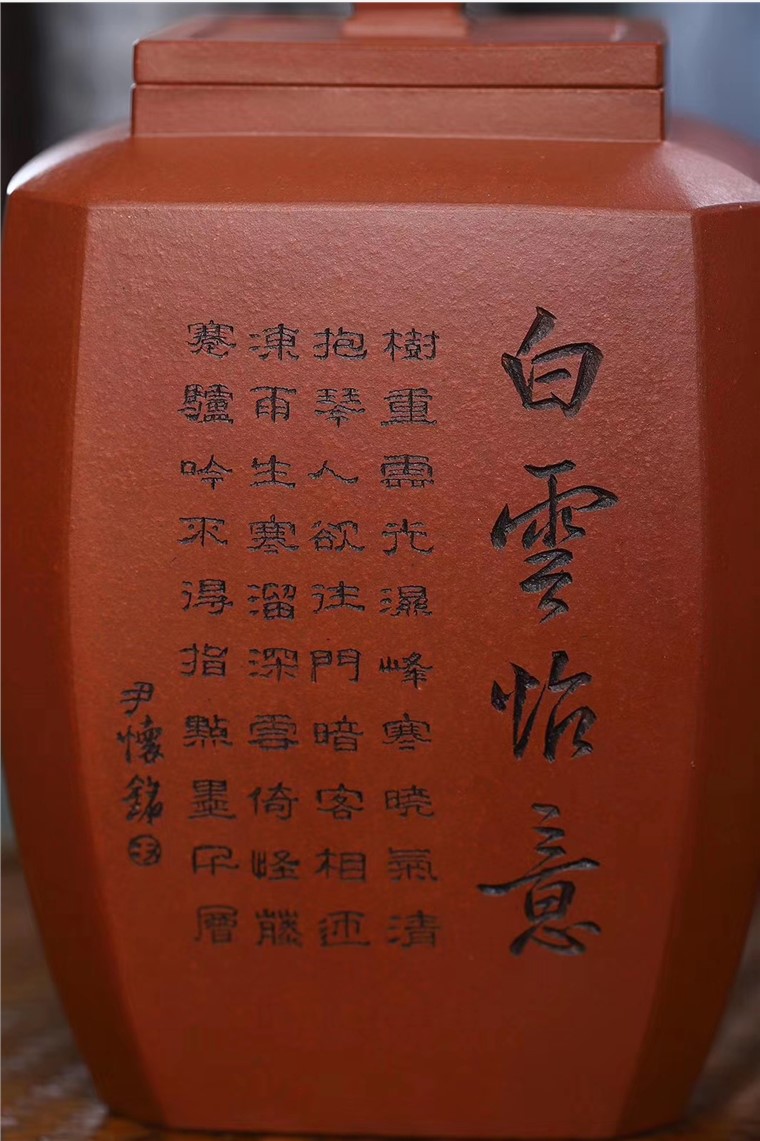 白雲怡意
樹重雲光濕峰寒曉氣清
抱琴人欲往門暗客相迎
凍雨生寒溜深雲倚怪藤
蹇驢吟不得指點墨千層
尹懷銘